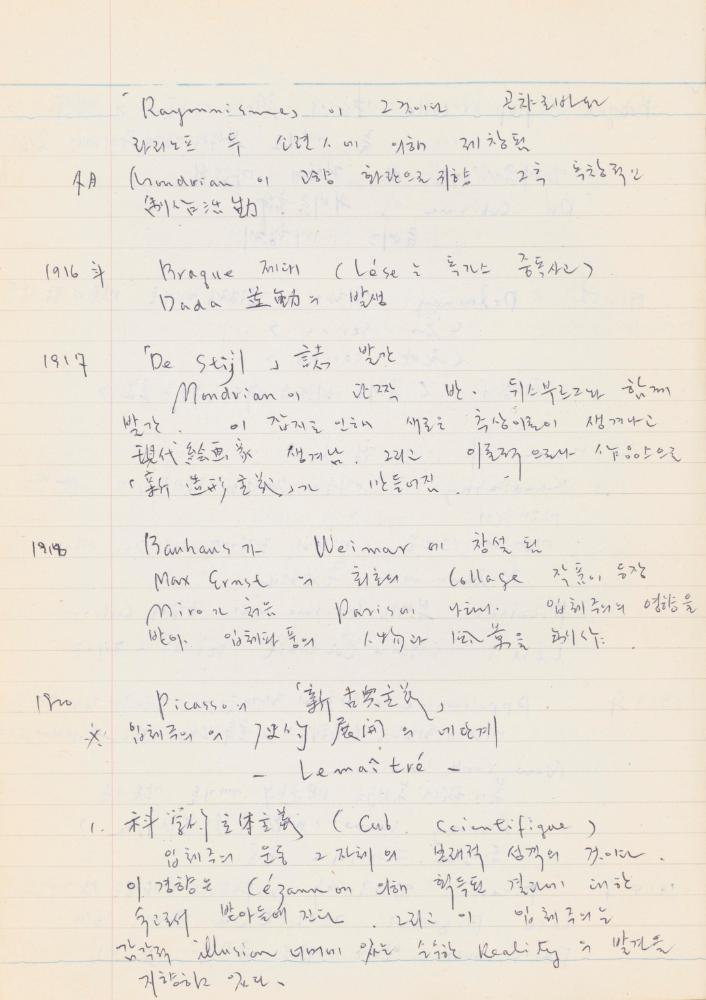 「Rayonnisme」이 그것이다 곤차로바와
라리노프 두 소련人에 의해 제창됨
4月 Mondrian이 고향 화란으로 귀향 그 후 독창적인
制作活動
1916年 Braque 제대 (Lése는 독가스 중독사고)
Dada 運動의 발생
1917 「De Stijl」誌 발간
Mondrian이 반. 뒤스부르그와 함께
발간. 이 잡지로 인해 새로운 추상이론이 생겨나고
現代絵画家 생겨남. 그리고 이론적으로나
「新造形主義」가 만들어짐.
1918 Bauhaus가 Weimar에 창설됨
Max Ernst의 최초의 Collage 작품이 등장
Miro가 처음 Paris에 나타나. 입체주의의 영향을
받아. 입체파풍의 人物과 風景을 制作.
1920 Picasso의 「新古典主義」
※ 입체주의의 史的 展開의 네단계
- Lemaîtré -
1. 科學的 立体主義 (Cub. scientifique)
입체주의 운동 그 자체의 본래적 성격의 것이다.
이 경향은 Cézanne에 의해 획득된 결과에 대한
숙고로서 받아들여진다. 그리고 이 입체주의는
감각적 illusion 너머에 있는 순수한 Reality의 발견을
지향하고 있다.